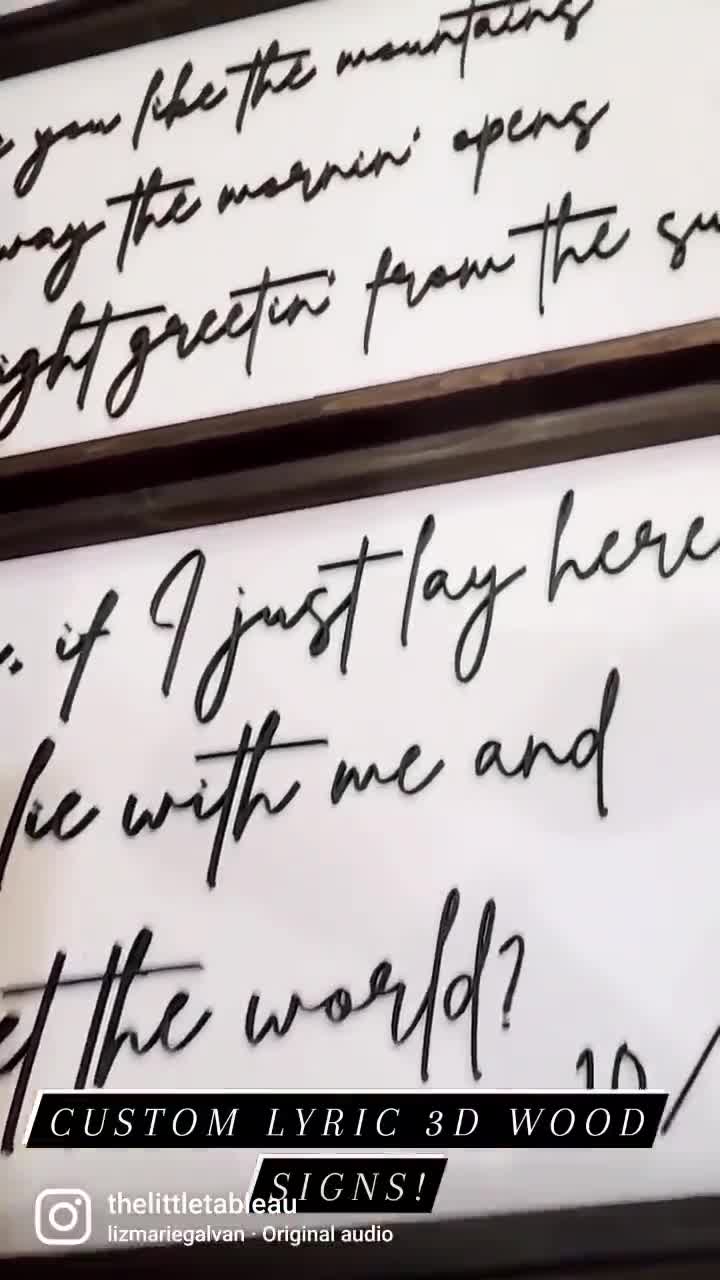 you like the mountains
way the mornin' opens
ight greetin' from the su
. if I just lay here
lie with me and
et the world?
10/
CUSTOM LYRIC 3D WOOD
SIGNS!
thelittletableau
lizmariegalvan · Original audio